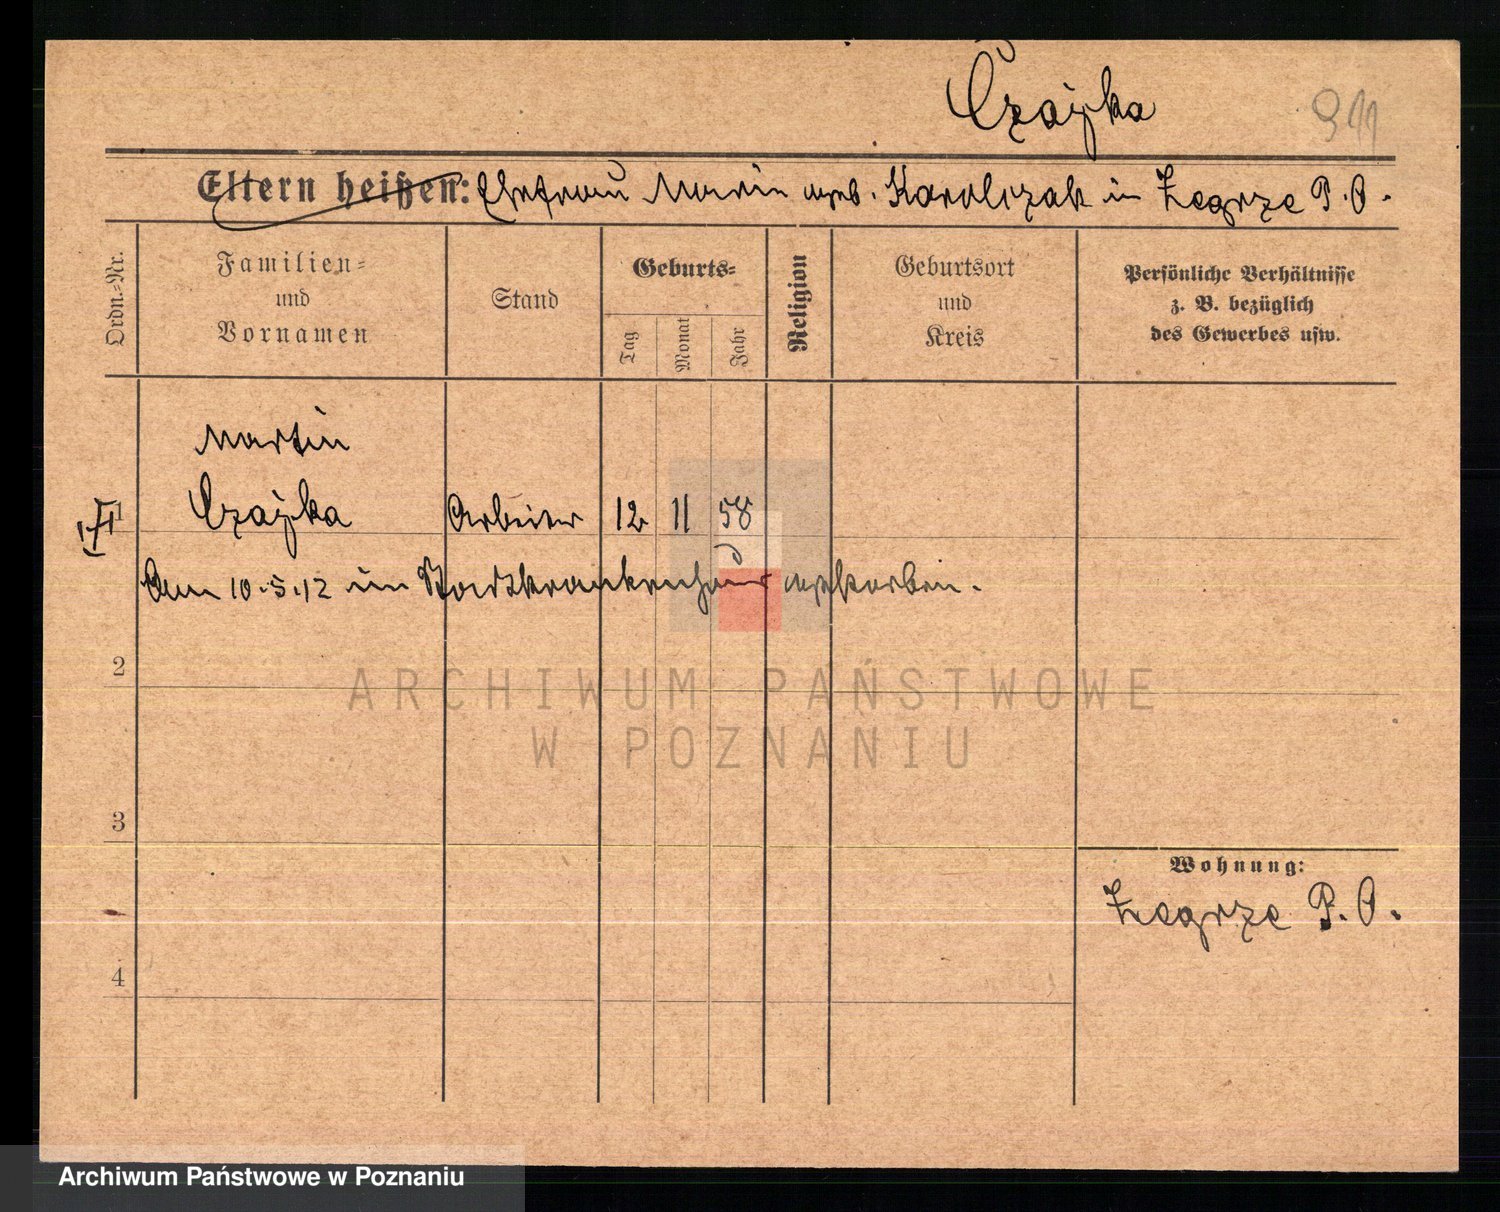 Czajka 911
Eltern heißen: Ehefrau Marie geb. Karolczak in Zegrze P. O.
Ordn.-Nr.
Familien-
und
Vornamen
Stand
Geburts-
Tag
Monat
Jahr
Religion
Geburtsort
und
Kreis
Persönliche Verhältnisse
z. B. bezüglich
des Gewerbes usw.
Martin
1 Czajka Arbeiter 12 11 58
Am 10.5.12 im Stadtkrankenhaus gestorben.
2
3
4
Wohnung:
Zegrze P. O.
ARCHIWUM PAŃSTWOWE
W POZNANIU
Archiwum Państwowe w Poznaniu